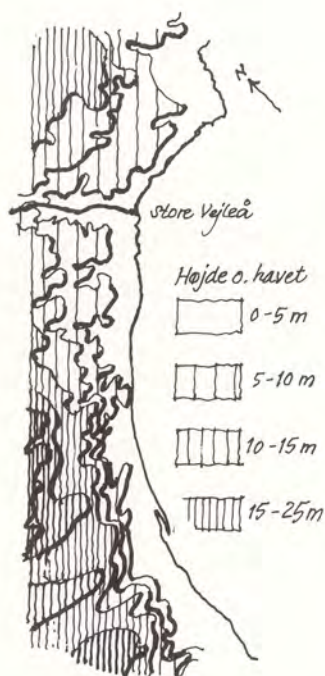 N
Store Vejleå
Højde o. havet
0-5 m
5-10 m
10-15 m
15-25 m